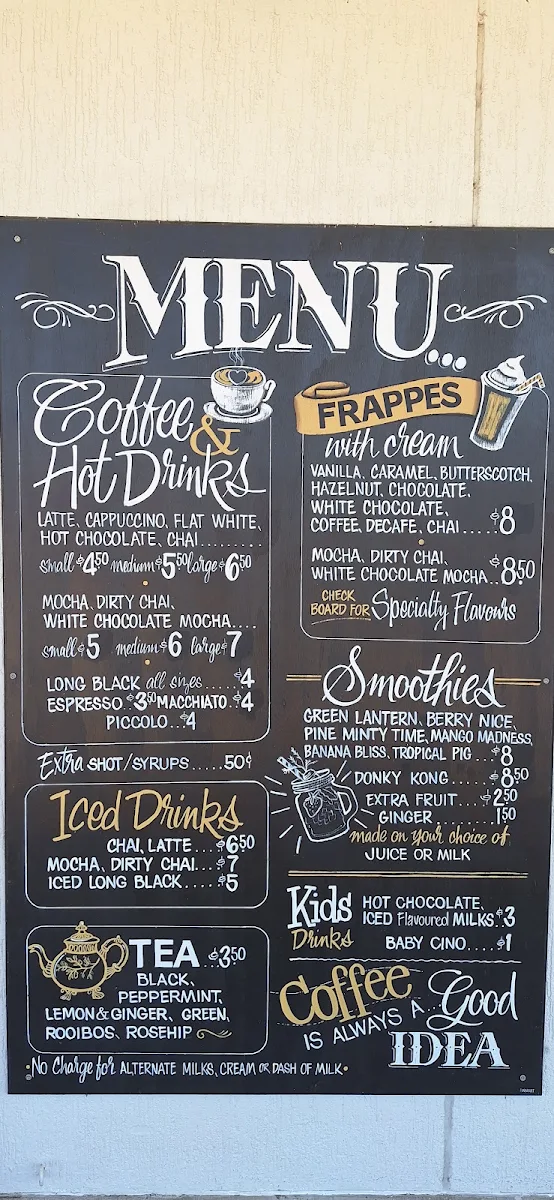 MENU...
Coffee &
Hot Drinks
LATTE, CAPPUCCINO, FLAT WHITE,
HOT CHOCOLATE, CHAI..........
small $4.50 medium $5.50 large $6.50
MOCHA, DIRTY CHAI,
WHITE CHOCOLATE MOCHA....
small $5 medium $6 large $7
LONG BLACK all sizes.....$4
ESPRESSO.$3.50 MACCHIATO.$4
PICCOLO..$4
Extra SHOT/SYRUPS.....50¢
Iced Drinks
CHAI, LATTE....$6.50
MOCHA, DIRTY CHAI...$7
ICED LONG BLACK.....$5
TEA..$3.50
BLACK,
PEPPERMINT,
LEMON & GINGER, GREEN,
ROOIBOS, ROSEHIP
FRAPPES
with cream
VANILLA, CARAMEL, BUTTERSCOTCH,
HAZELNUT, CHOCOLATE,
WHITE CHOCOLATE,
COFFEE, DECAFE, CHAI....$8
MOCHA, DIRTY CHAI,
WHITE CHOCOLATE MOCHA..$8.50
CHECK
BOARD FOR Specialty Flavours
Smoothies
GREEN LANTERN, BERRY NICE,
PINE MINTY TIME, MANGO MADNESS,
BANANA BLISS, TROPICAL PIG...$8
DONKY KONG.....$8.50
EXTRA FRUIT....$2.50
GINGER.........1.50
made on your choice of
JUICE OR MILK
Kids
Drinks
HOT CHOCOLATE,
ICED Flavoured MILKS.$3
BABY CINO....$1
Coffee
IS ALWAYS A Good
IDEA
No Charge for ALTERNATE MILKS, CREAM OR DASH OF MILK